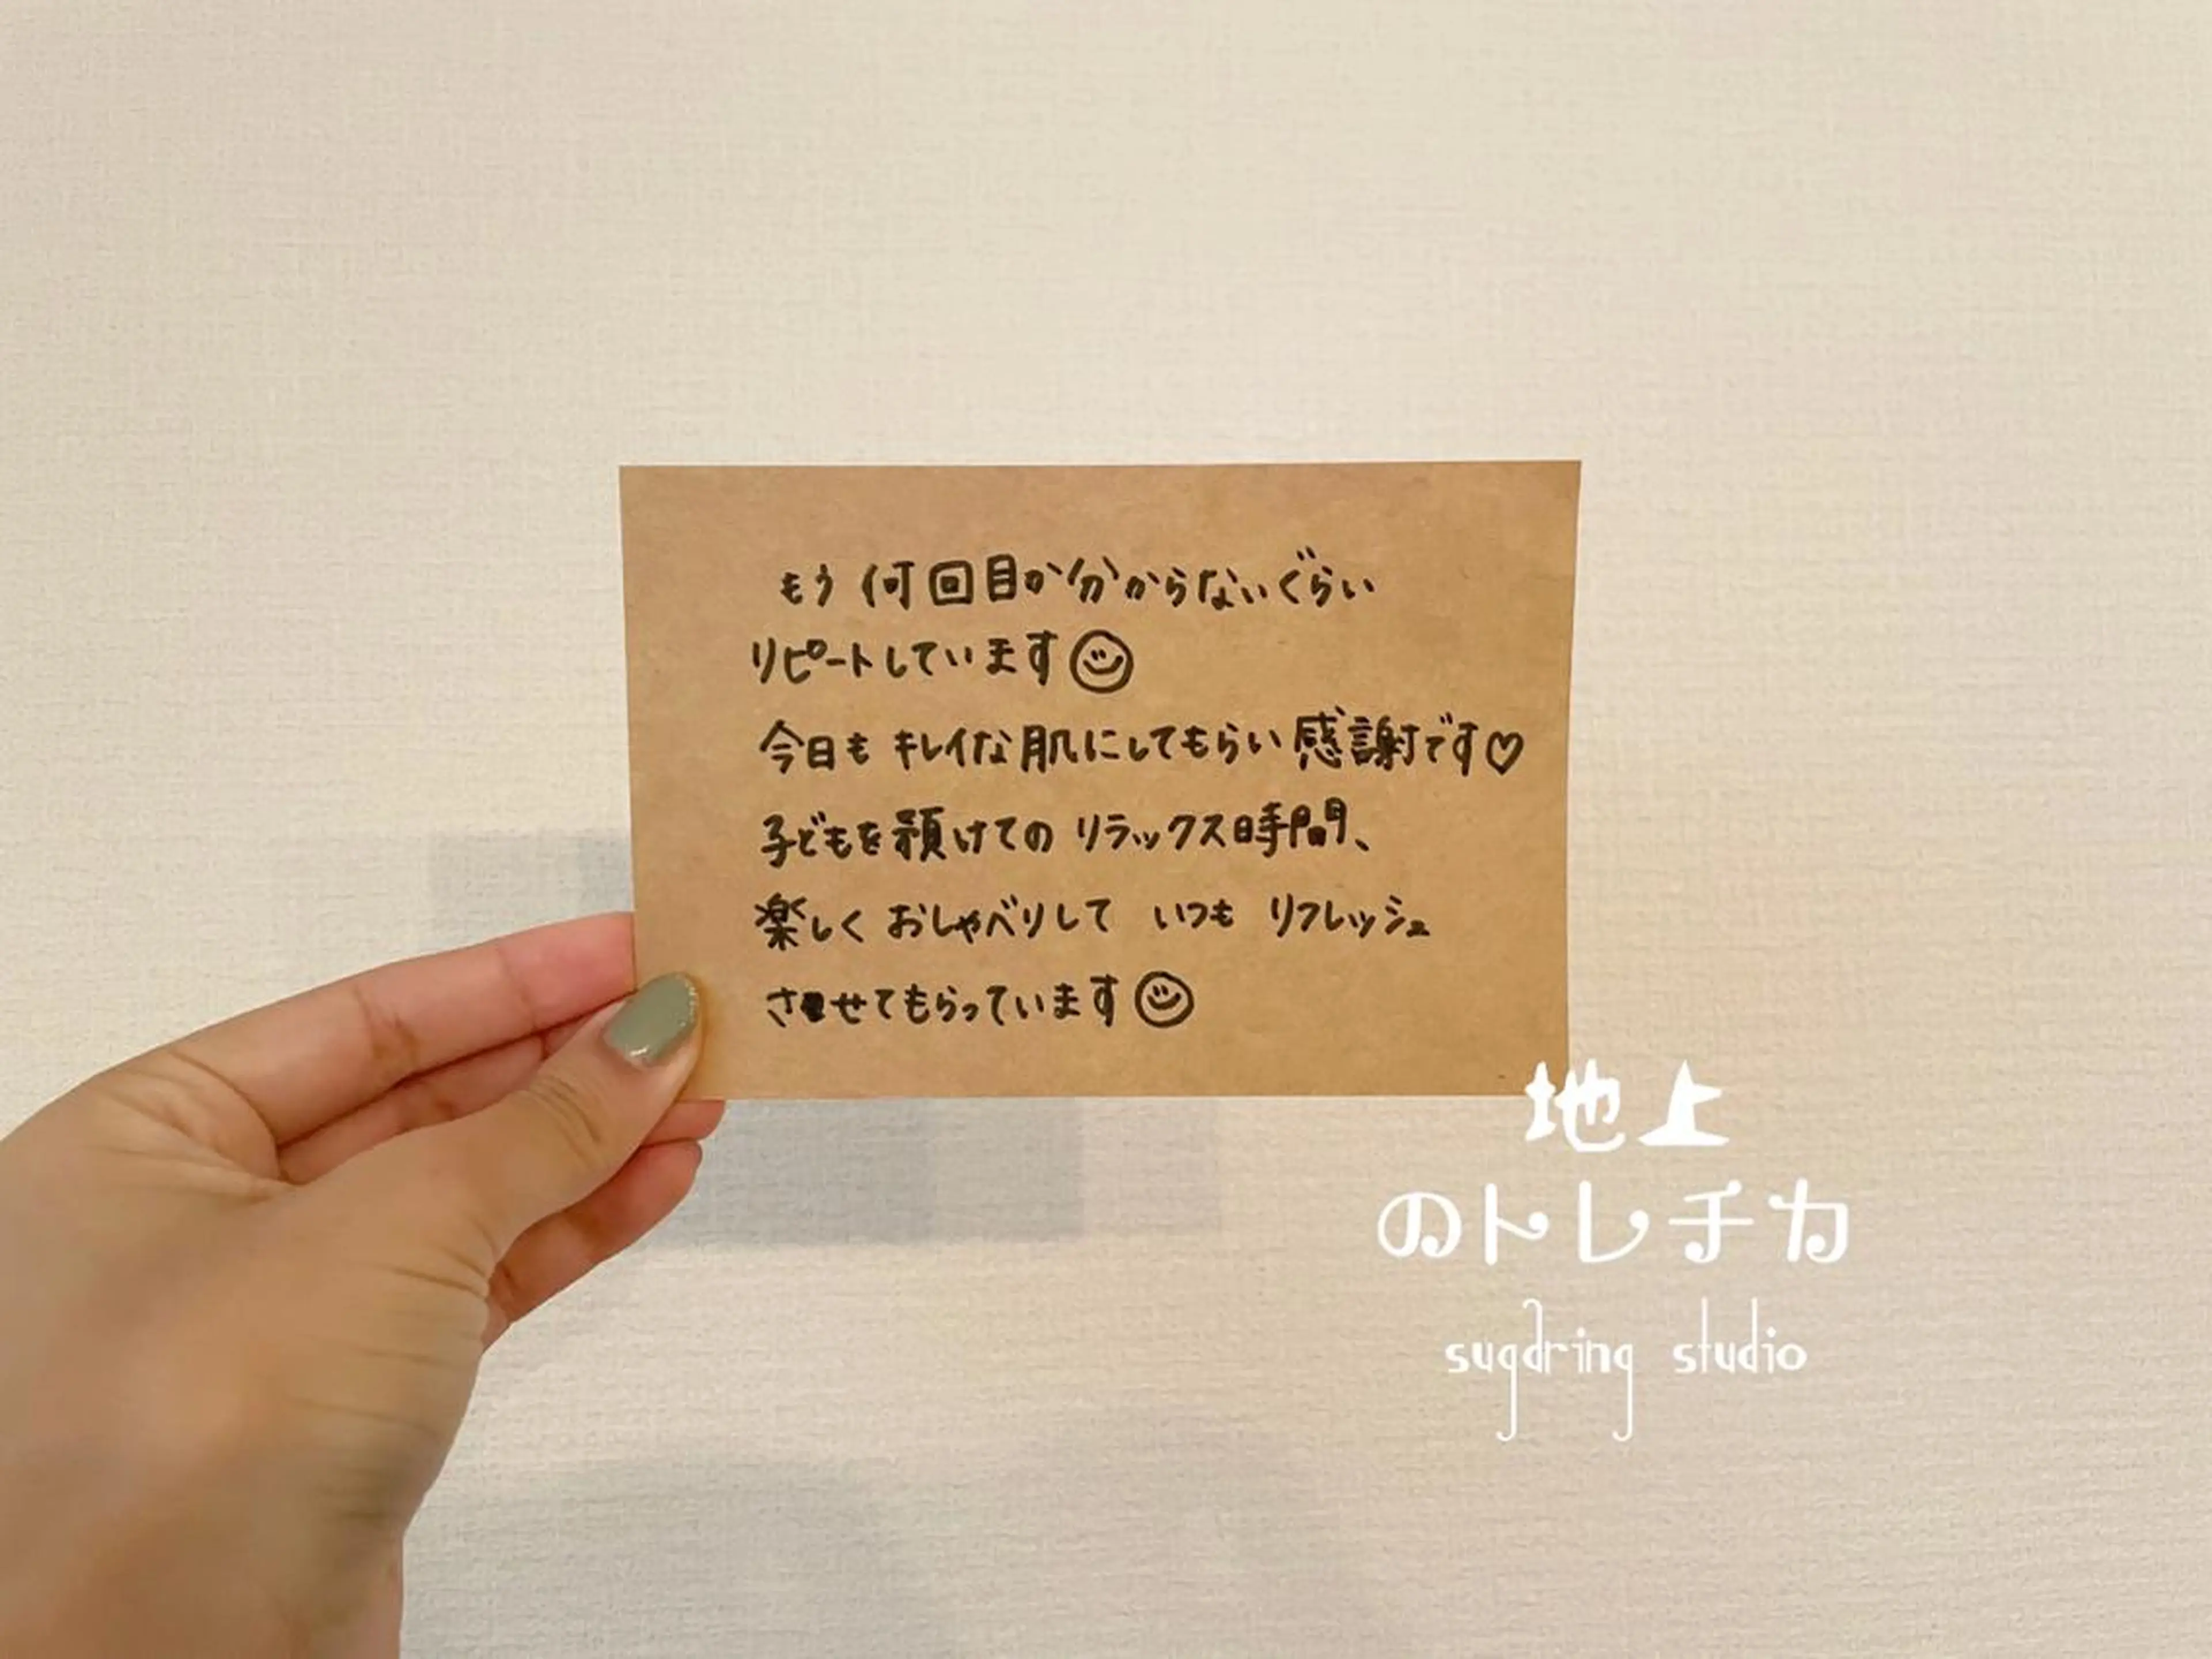 もう何回目か分からないぐらい
リピートしています☺
今日も キレイな肌にしてもらい感謝です♡
子どもを預けての リラックス時間、
楽しく おしゃべりして いつも リフレッシュ
させてもらっています☺
地上
のトレチカ
sugaring studio